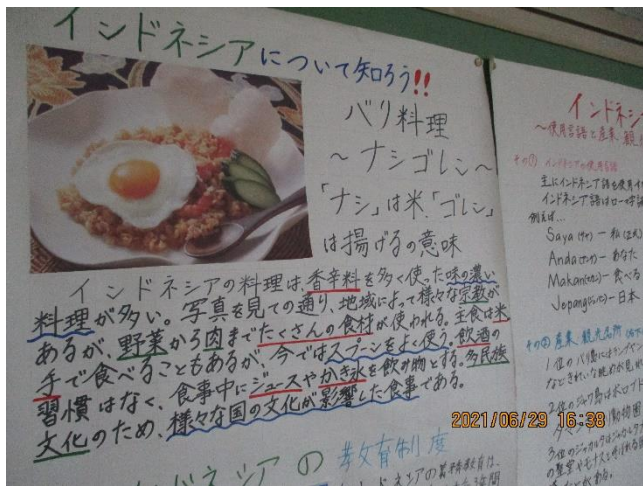 インドネシアについて知ろう!!
バリ料理
〜ナシゴレン〜
「ナシ」は米「ゴレン」
は揚げるの意味
インドネシアの料理は、香辛料を多く使った味の濃い
料理が多い。写真を見ての通り、地域によって様々な
あるが、野菜から肉までたくさんの食材が使われる。主食は米
手で食べることもあるが、今ではスプーンをよく使う。飲酒の
習慣はなく、食事中にジュースやかき氷を飲み物とする。多民族
文化のため、様々な国の文化が影響した食事である。
インドネシアの教育制度
インドネシ
〜使用言語と産業、観光
その① インドネシアの使用言語
主にインドネシア語を使用
インドネシア語はローマ字
例えば…
Saya(サヤ)ー私
Anda(アンダ)ーあなた
Makan ー食べる
Jepang ー日本
その② 産業、観光名所
1位のバリ島
2位のジャワ島はボロブ
動物園
3位のジャカルタは
2021/06/29 16:38